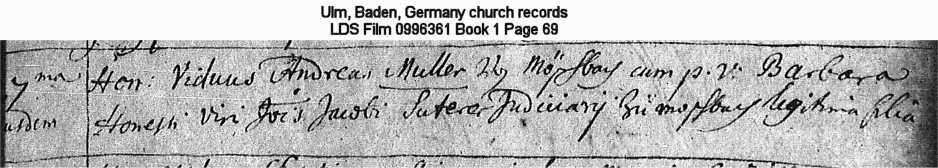 Ulm, Baden, Germany church records
LDS Film 0996361 Book 1 Page 69
7ma Hon: Viduus Andreas Muller Zu Mößbach cum p. v. Barbara
usdem Honesti Viri Jois Jacobi Suterer Judiciarij Zü mossbach legitima filia